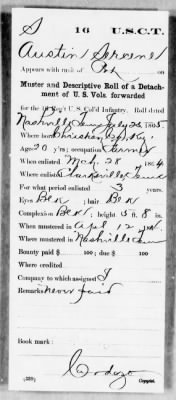 S 16 U.S.C.T.
Austin
Appears with rank of Pvt on
Muster and Descriptive Roll of a Detach-
ment of U. S. Vols. forwarded
for the 16 Reg't U. S. Col'd Infantry. Roll dated
Nashville Tenn July 25 1865.
Where born Christian Co, Ky.
Age 20 y'rs; occupation Farmer
When enlisted Mch. 28, 1864.
Where enlisted Clarksville, Tenn
For what period enlisted 3 years.
Eyes Blk; hair Blk
Complexion Blk; height 5 ft. 8 in.
When mustered in Apl. 12, 1864.
Where mustered in Nashville Tenn
Bounty paid $ 100; due $ 100
Where credited
Company to which assigned I
Remarks: Never paid
Book mark:
Cordozo
(339) Copyist.